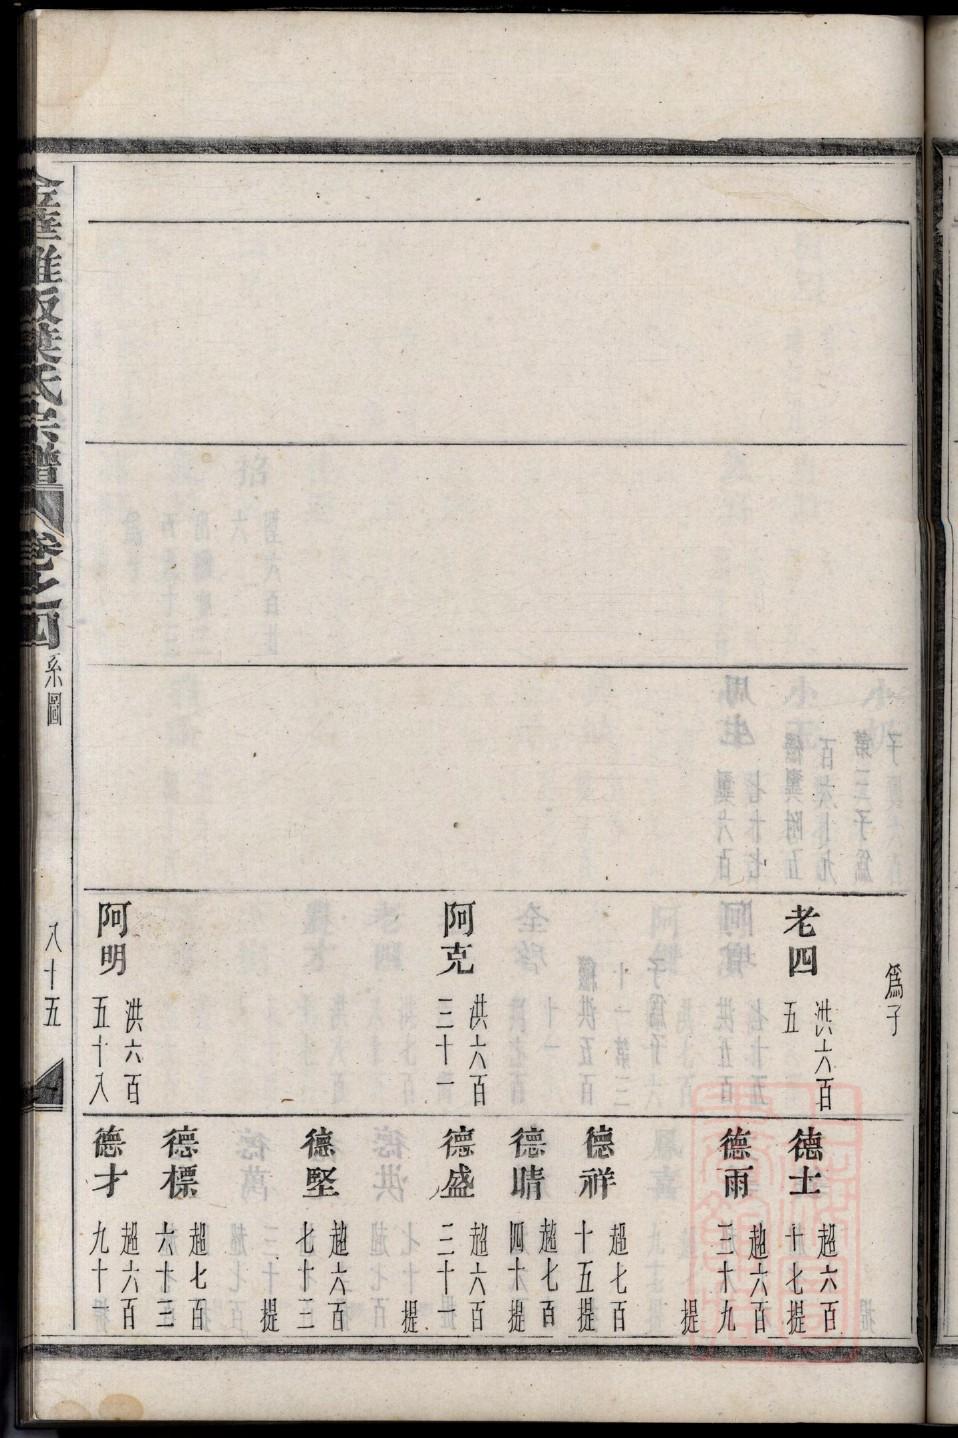 爲子
老四
洪六百
五
阿克
洪六百
三十一
阿明
洪六百
五十八
德士
超六百
十七提
德雨
超六百
三十九
提
德祥
超七百
十五提
德晴
超七百
四十提
德盛
超六百
三十一
提
德堅
超六百
七十三
提
德標
超七百
六十三
德才
超六百
九十一
氏宗譜
卷之四
系圖
八十五